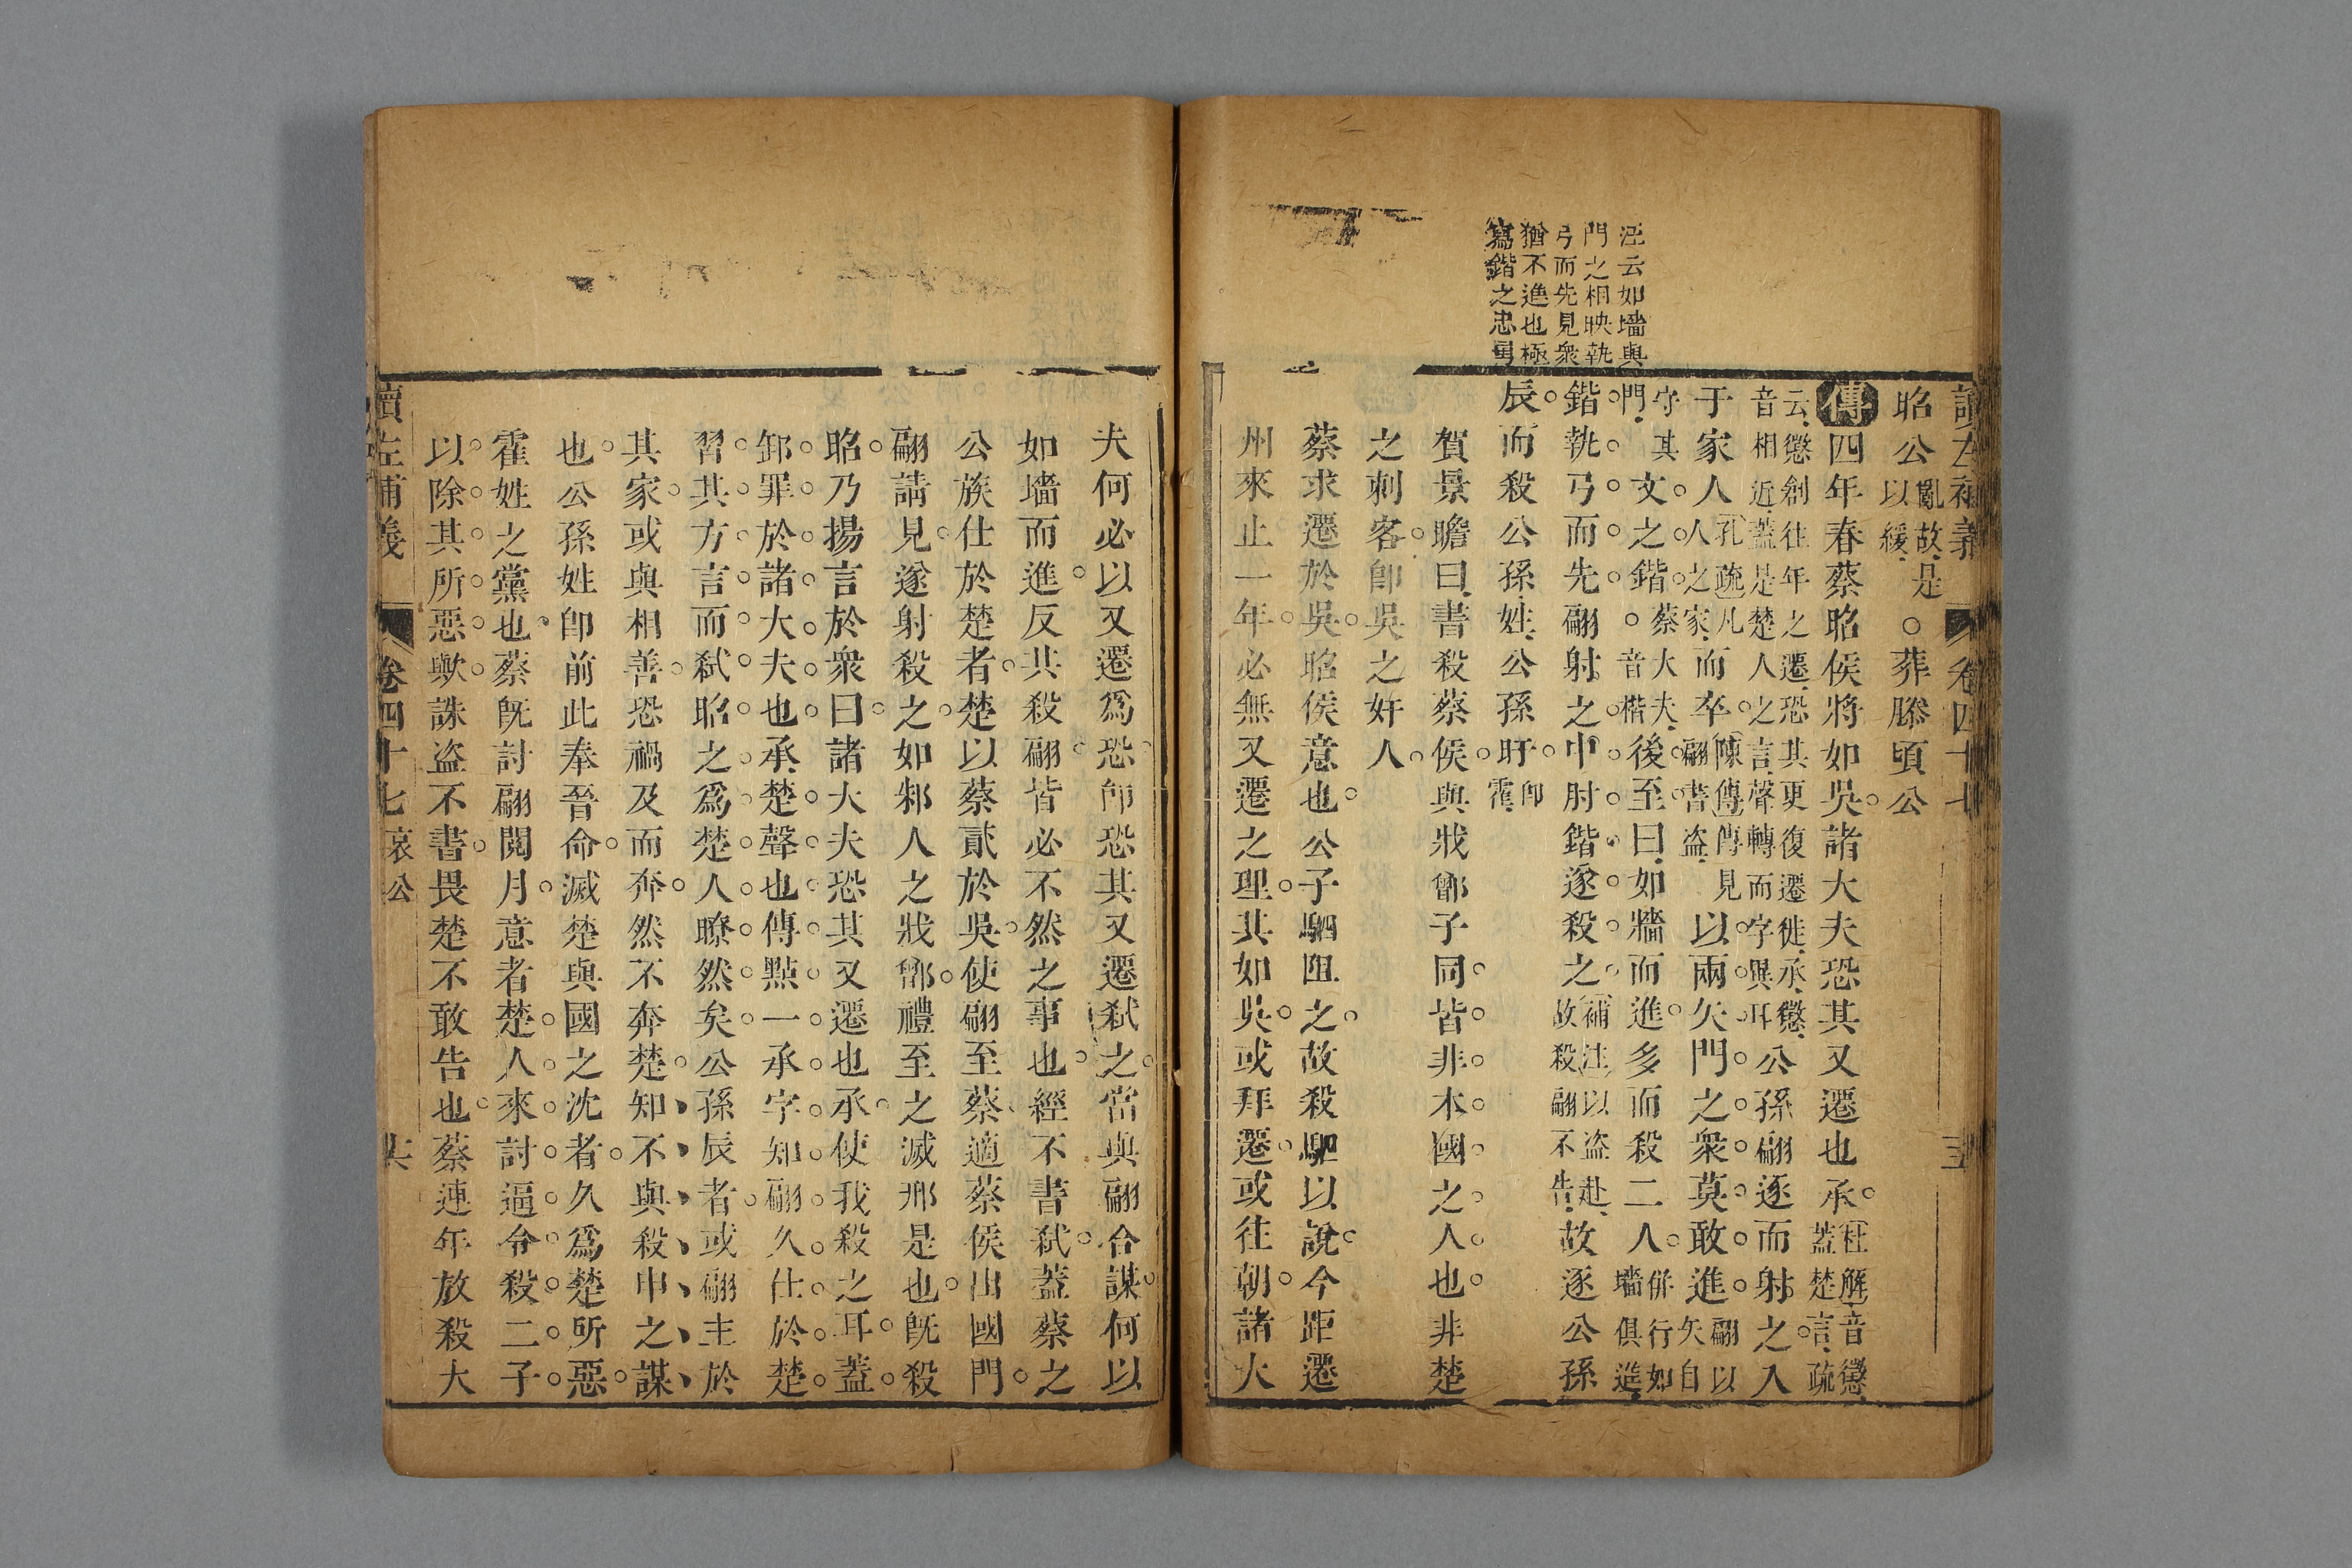 讀左補義 卷四十七
昭公亂故是以緩○葬滕頃公
傳四年春蔡昭侯將如吳諸大夫恐其又遷也承杜解音懲蓋楚言疏
云懲創往年之遷恐其更復遷徙承懲音相近蓋是楚人之言聲轉而字異耳公孫翩逐而射之入
于家人孔疏凡人之家而卒陳傳傳見翩書盜以兩矢門之衆莫敢進翩以矢自
守其門文之鍇蔡大夫音楷後至曰如牆而進多而殺二人併行如墻俱進
鍇執弓而先翩射之中肘鍇遂殺之補注以盜赴故殺翩不告故逐公孫
辰而殺公孫姓公孫盱即霍
注云如墻與
門之相映執
弓而先見衆
猶不進也極
寫鍇之忠勇
賀景瞻曰書殺蔡侯與戕鄫子同皆非本國之人也非楚
之刺客即吳之奸人
蔡求遷於吳昭侯意也公子駟阻之故殺駟以說今距遷
州來止一年必無又遷之理其如吳或拜遷或往朝諸大
夫何必以又遷爲恐即恐其又遷弑之當與翩合謀何以
如墻而進反共殺翩皆必不然之事也經不書弑蓋蔡之
公族仕於楚者楚以蔡貳於吳使翩至蔡適蔡侯出國門
翩請見遂射殺之如邾人之戕鄫禮至之滅邢是也旣殺
昭乃揚言於衆曰諸大夫恐其又遷也承使我殺之耳蓋
卸罪於諸大夫也承楚聲也傳點一承字知翩久仕於楚
習其方言而弑昭之爲楚人暸然矣公孫辰者或翩主於
其家或與相善恐禍及而奔然不奔楚知不與殺申之謀
也公孫姓即前此奉晉命滅楚與國之沈者久爲楚所惡
霍姓之黨也蔡旣討翩閱月意者楚人來討逼令殺二子
以除其所惡歟誅盜不書畏楚不敢告也蔡連年放殺大
讀左補義 卷四十七 哀公